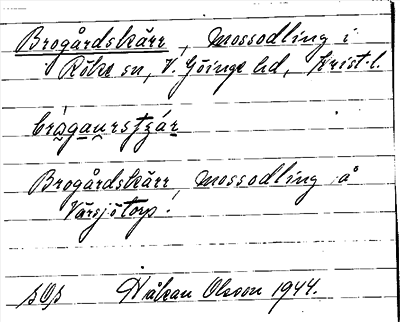 Brogårdskärr, Mossodling i
Röke sn, V. Göinge hd, Krist. l.
Brogårdskärr, Mossodling å
Värsjötorp.
Håkan Olsson 1944.